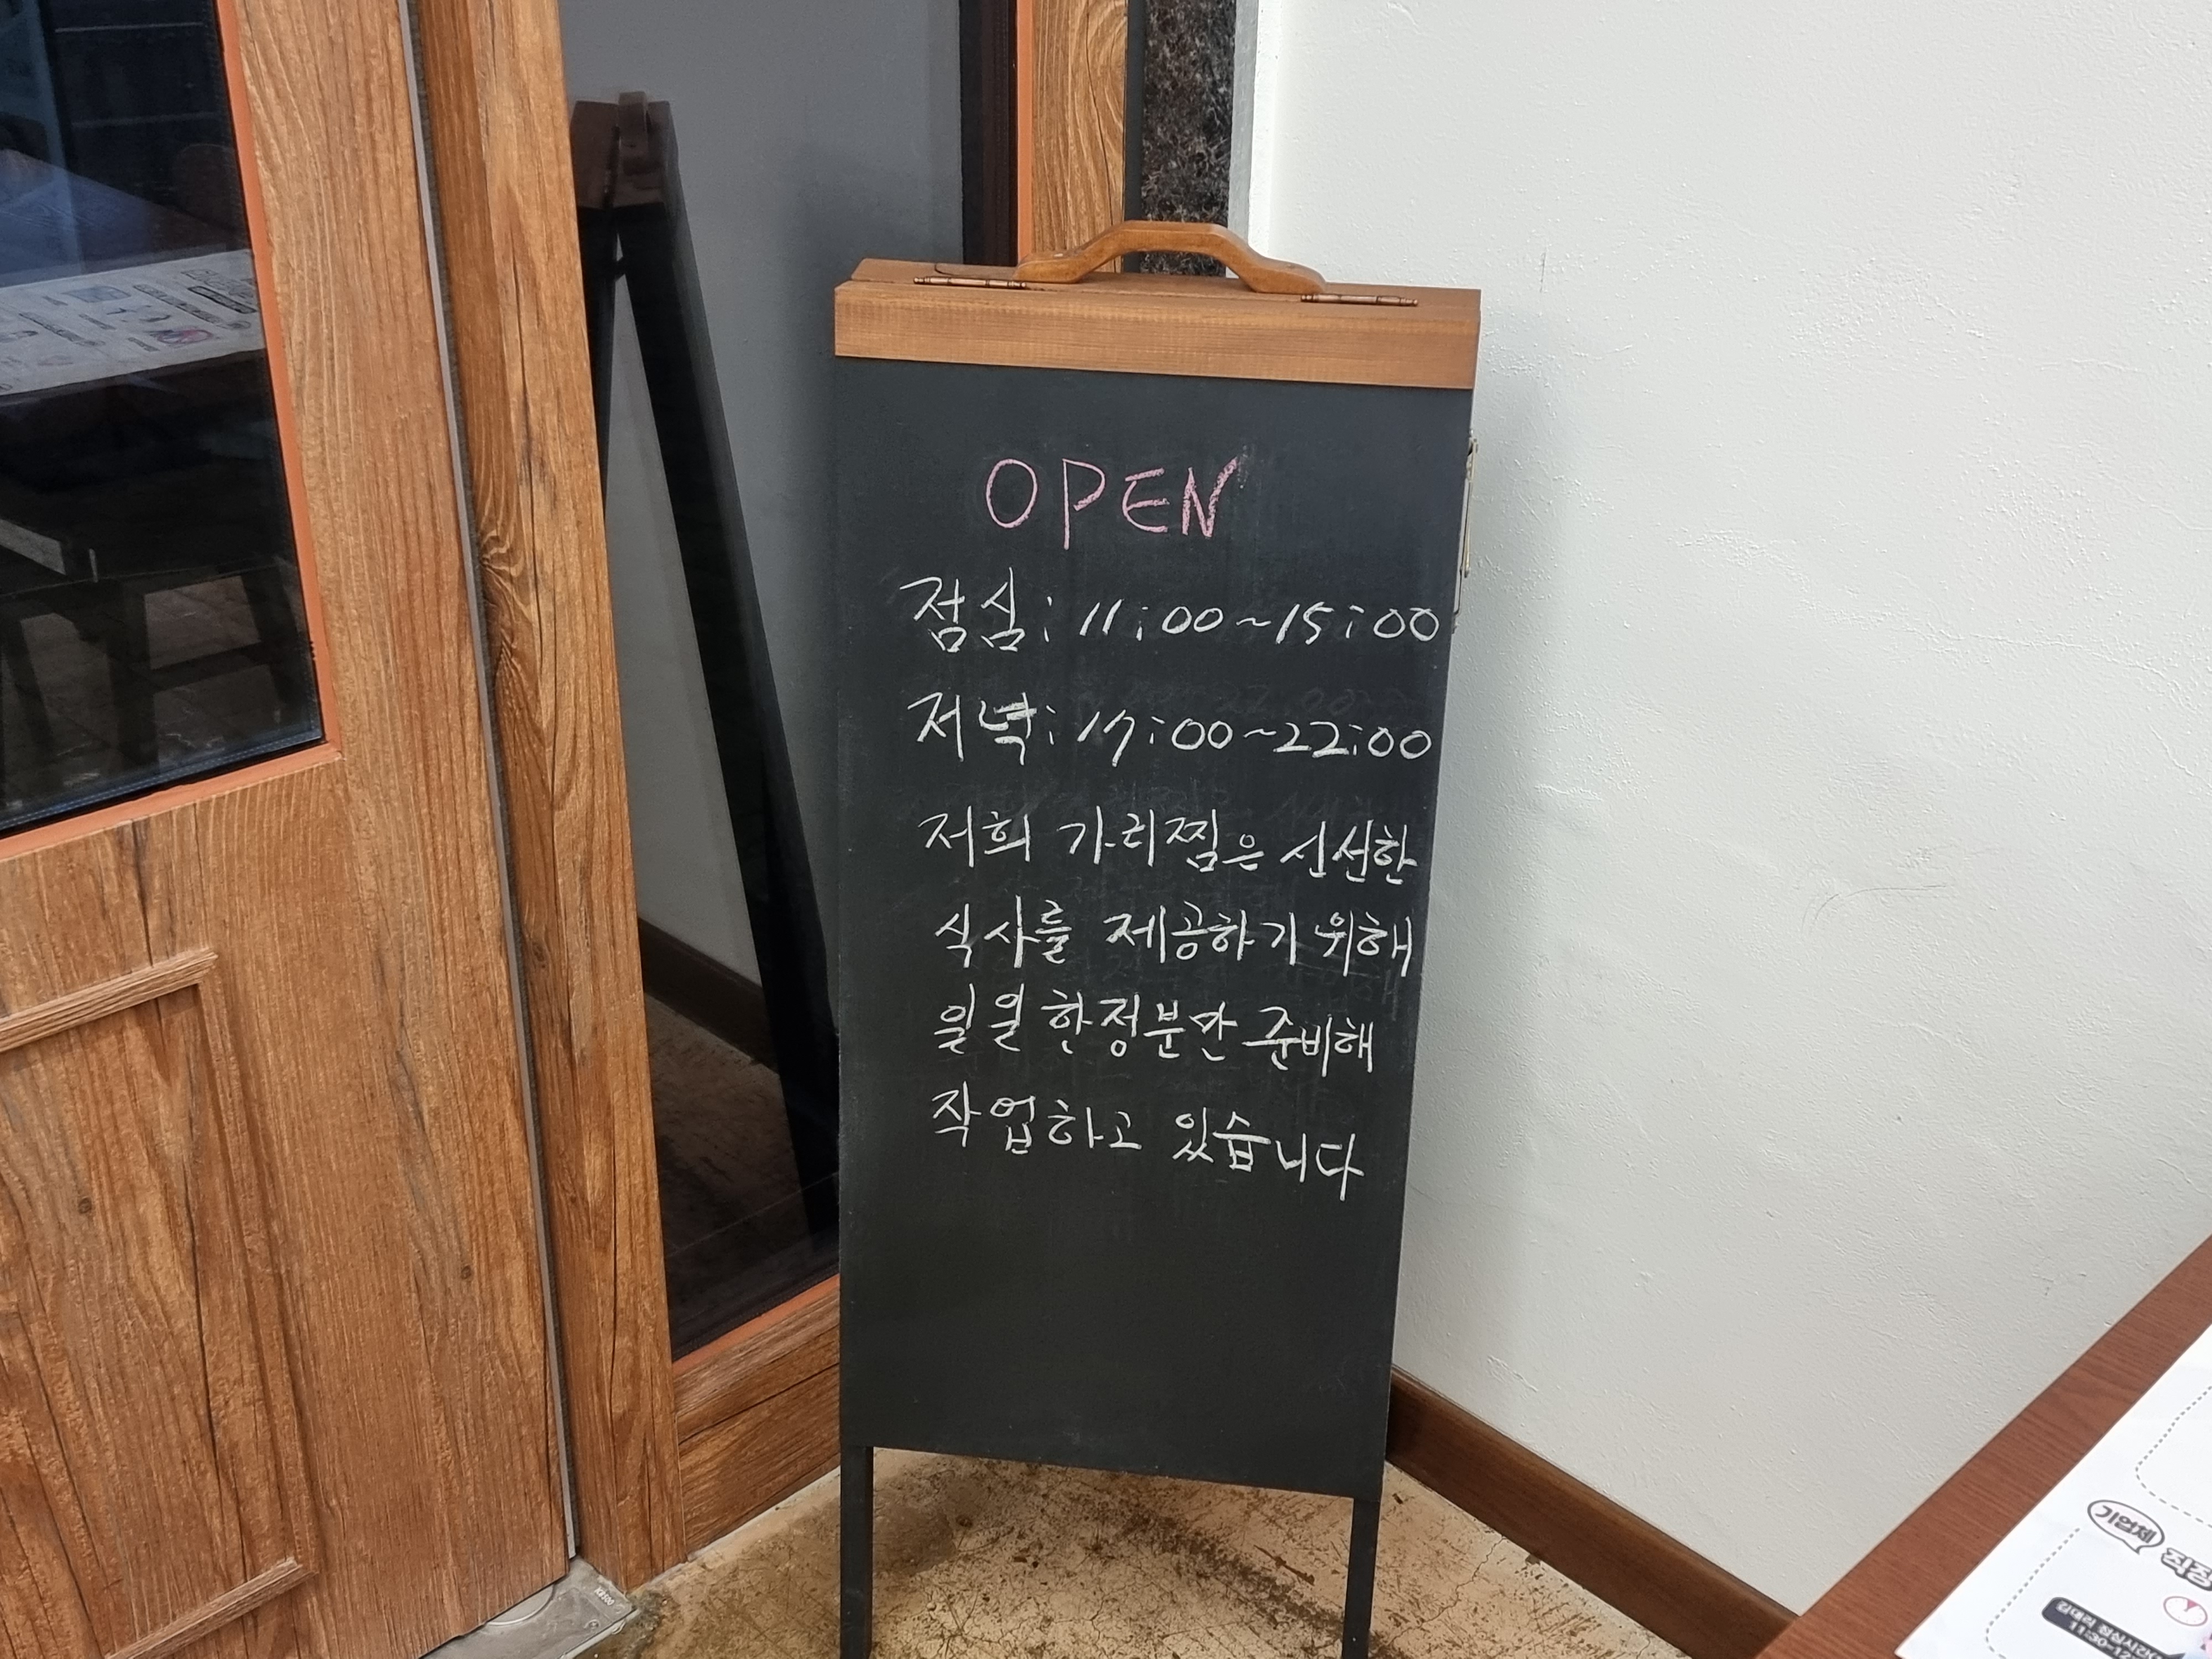 OPEN
점심: 11:00~15:00
저녁: 17:00~22:00
저희 가리찜은 신선한
식사를 제공하기 위해
일일 한정분만 준비해
작업하고 있습니다
기업체
11:30~12: